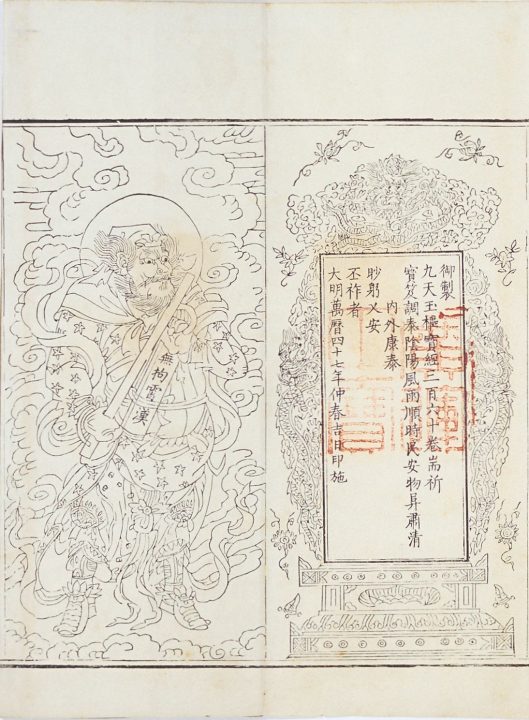 御製
九天玉樞寶經二百六十卷耑祈
寶笈調泰陰陽風雨順時民安物昇肅清
內外康泰
眇躬乂安
丕祚者
大明萬曆四十七年仲春吉日印施
無拘霄漢